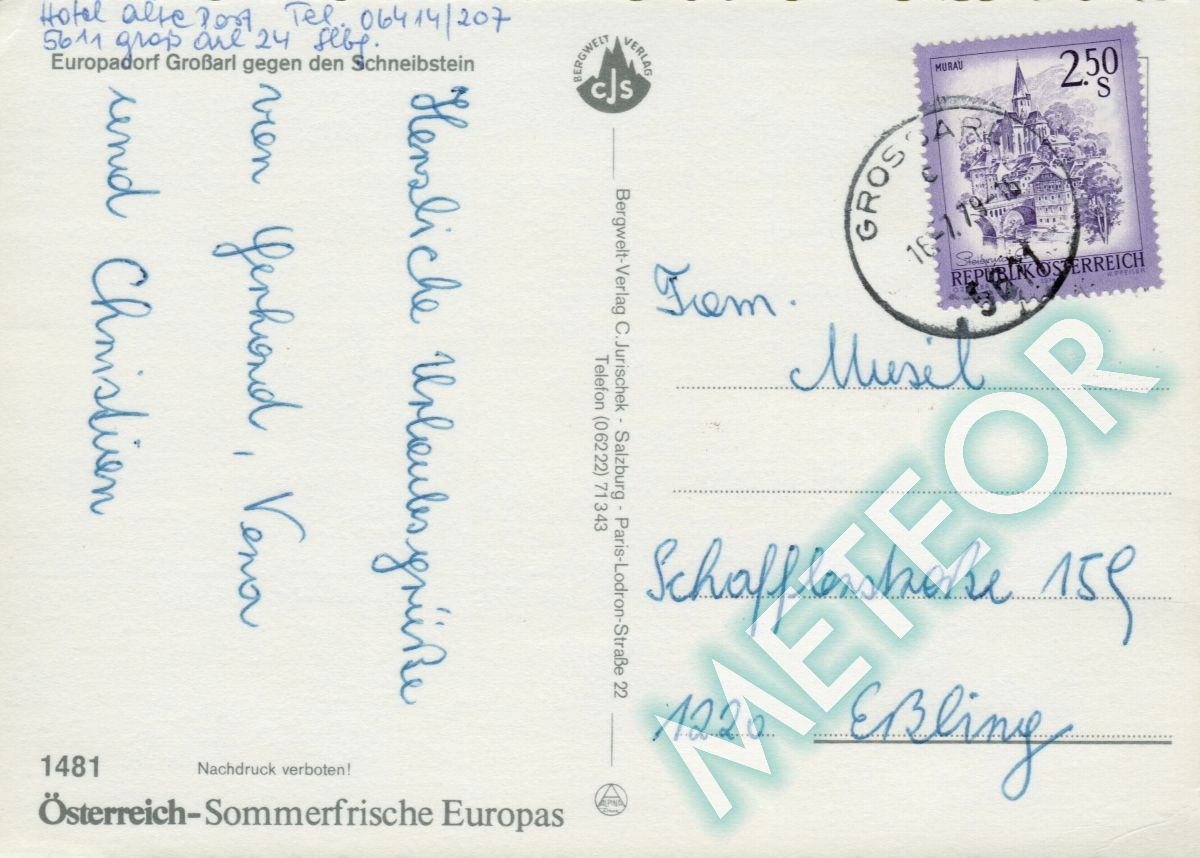 Hotel alte Post, Tel. 06414/207
5611 groß arl 24 Slbg.
Europadorf Großarl gegen den Schneibstein
Herzliche Urlaubsgrüße
von Gerhard, Vera
und Christian
1481
Nachdruck verboten!
Österreich-Sommerfrische Europas
BERGWELT VERLAG
CJS
Bergwelt-Verlag C.Jurischek - Salzburg - Paris-Lodron-Straße 22
Telefon (06222) 71343
ALPINE
MURAU
2.50
S
REPUBLIK ÖSTERREICH
GROSSARL
c
16.-7.79-16
5611
Fam.
Musil
Schafflerstraße 159
1220 Eßling
METEOR